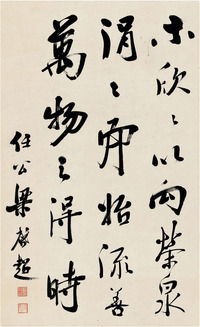 木欣〻以向榮泉
涓〻而始流善
萬物之得時
任公梁啟超